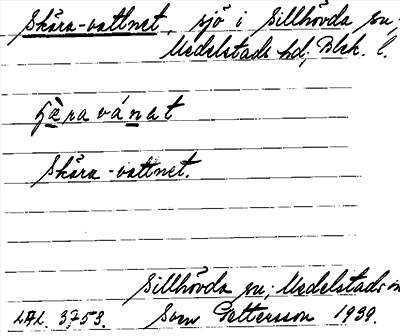 Skåra-vattnet, sjö i Sillhövda sn,
Medelstads hd, Blek. l.
Skåra-vattnet.
Sillhövda sn, Medelstads
LAL. 3753. Sven Pettersson 1939.